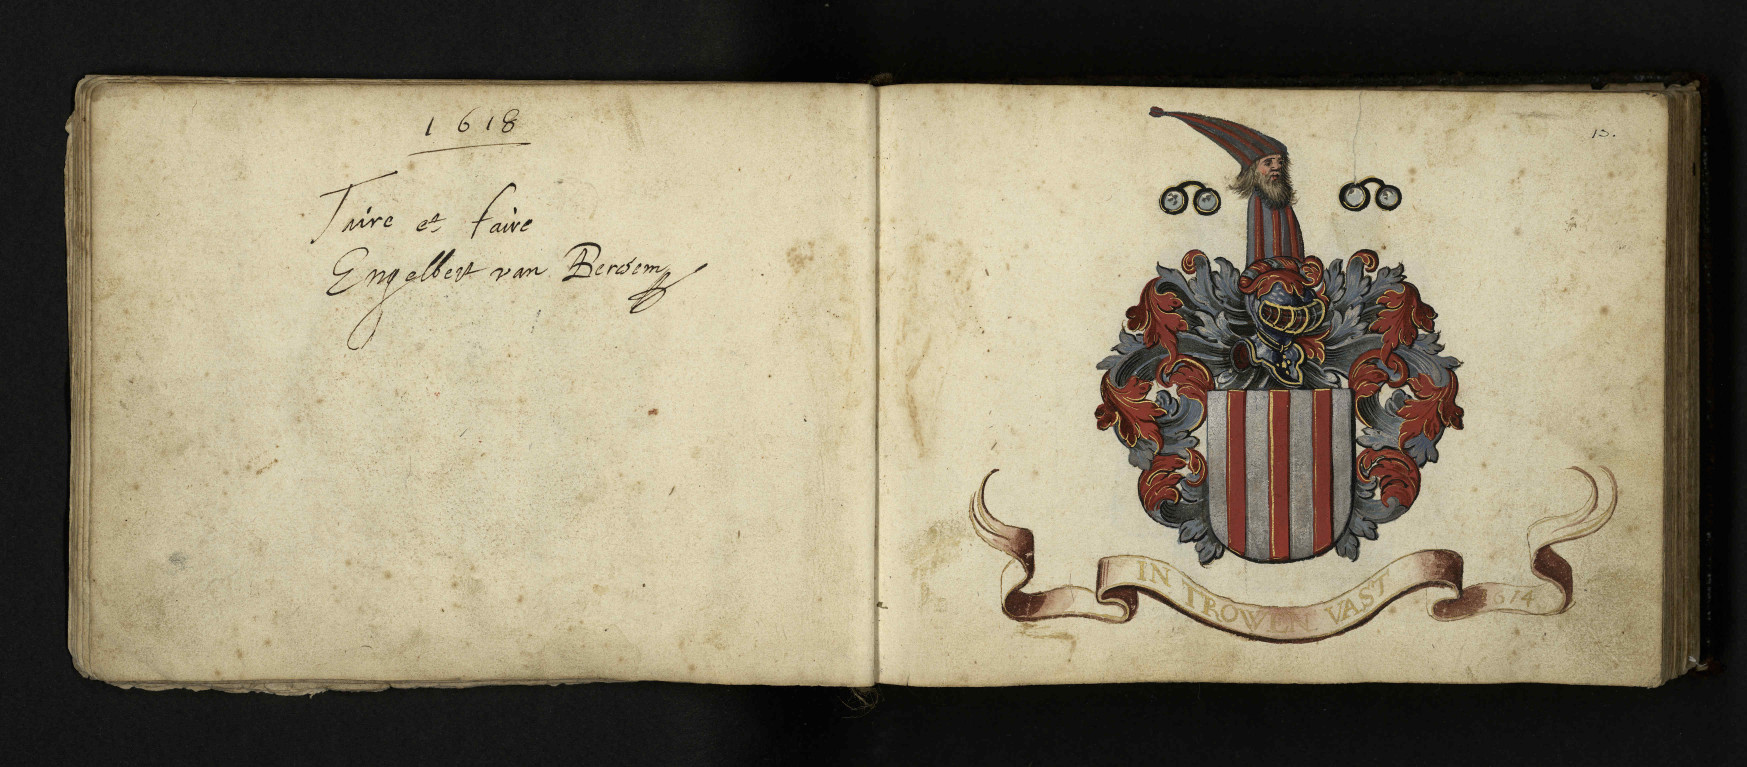 1618
Taire et faire
Engelbert van Bersem
13.
IN TROWEN VAST
1614